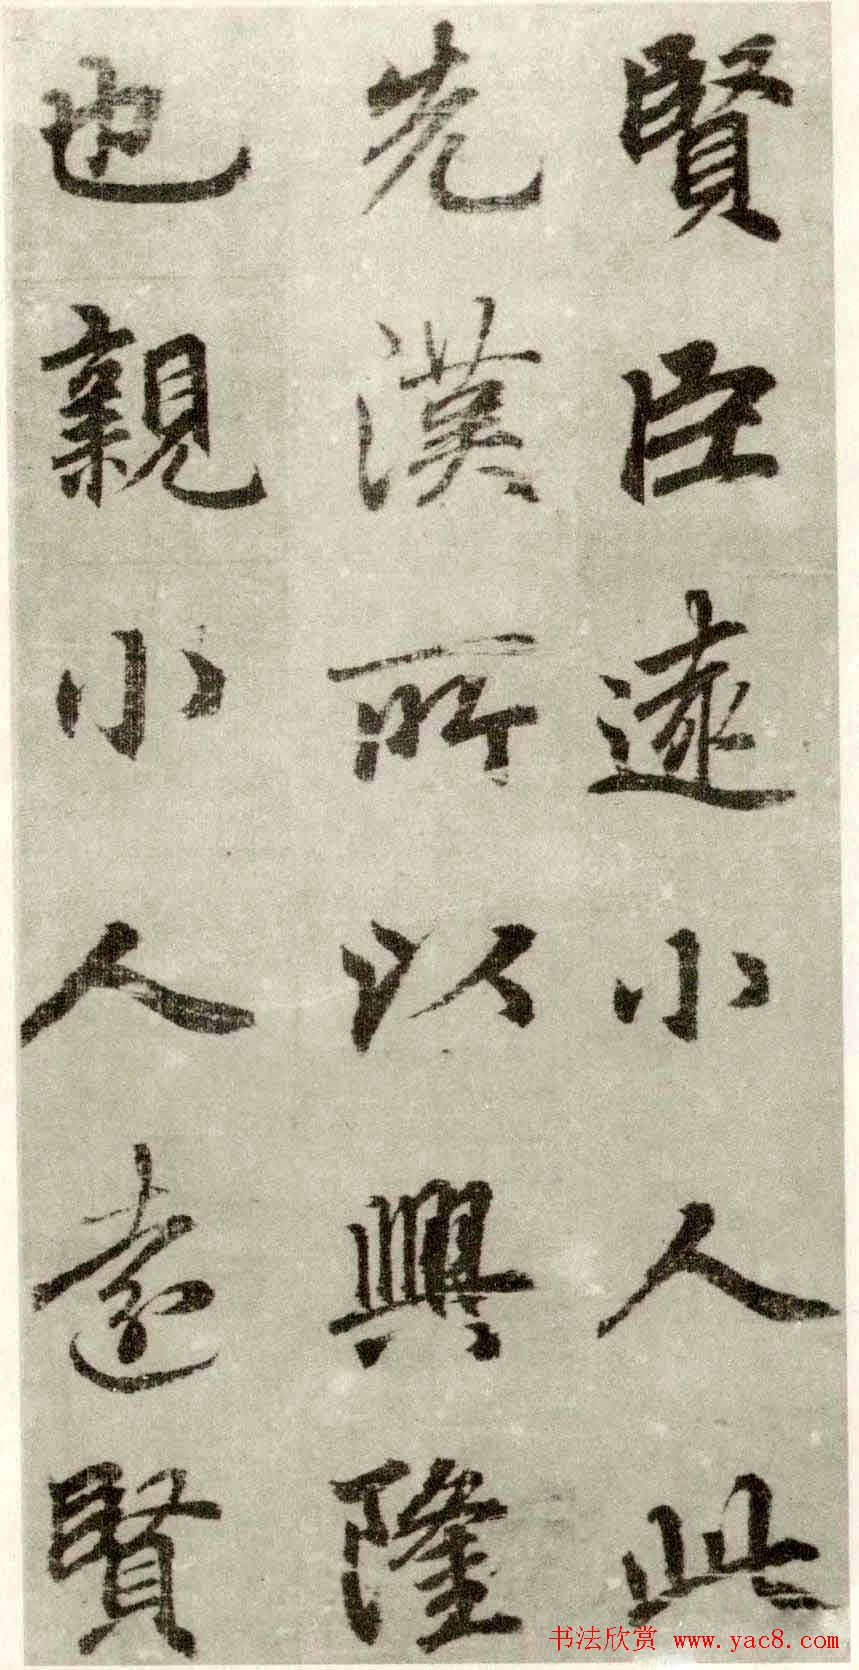 賢臣遠小人此
先漢所以興隆
也親小人遠賢
书法欣赏 www.yac8.com